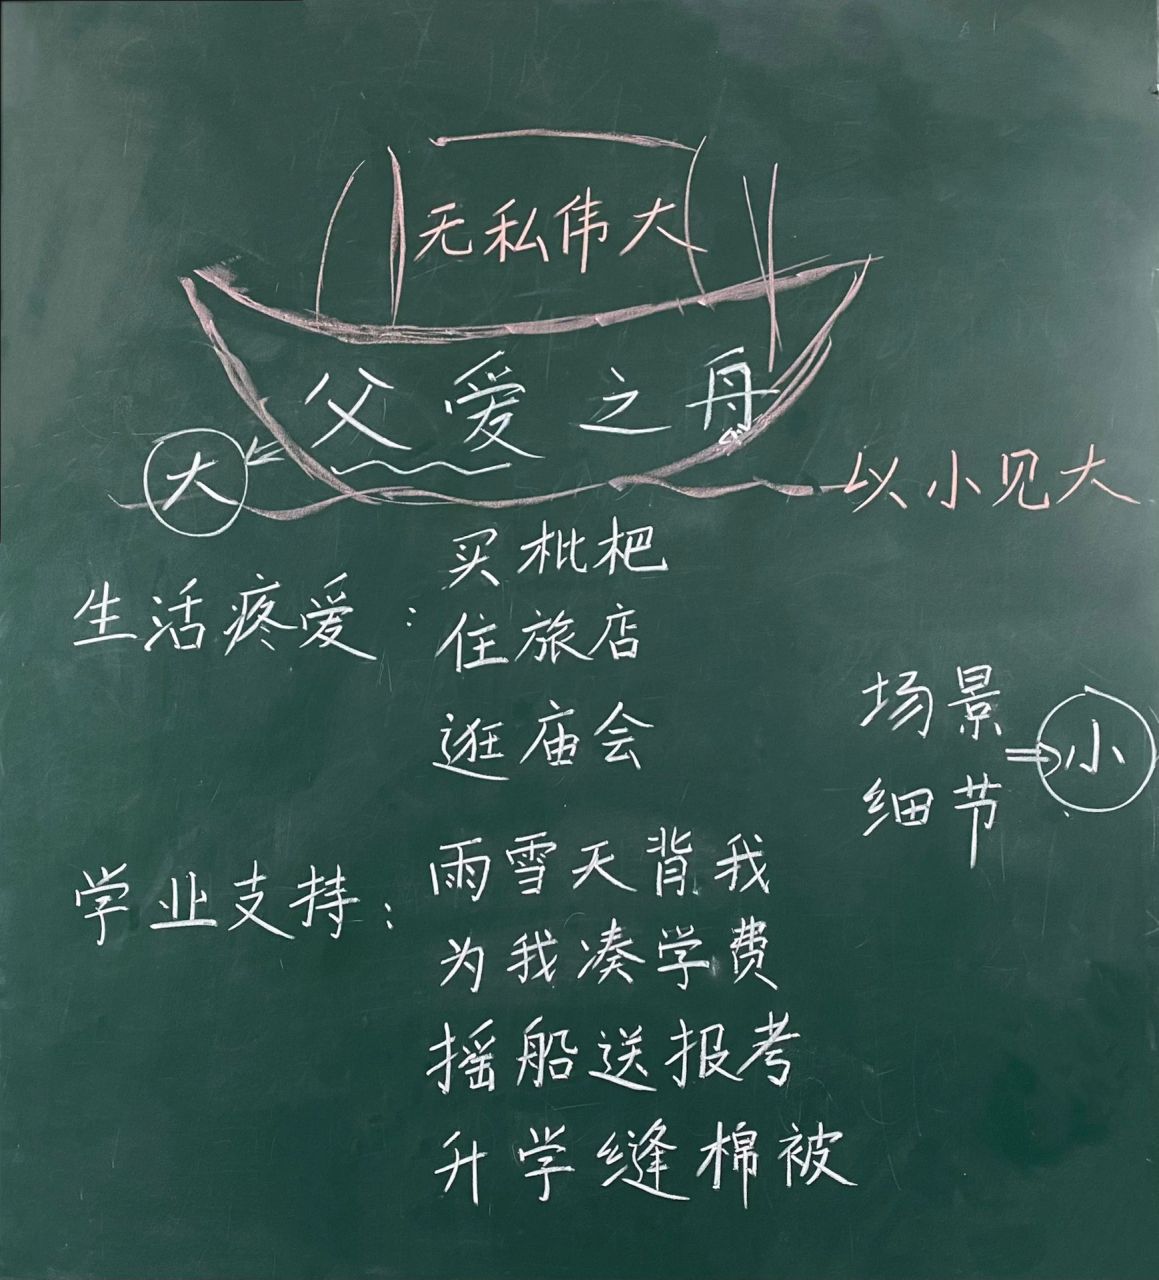 无私伟大
父爱之舟
大
以小见大
生活疼爱：
买枇杷
住旅店
逛庙会
场景
细节
小
学业支持：
雨雪天背我
为我凑学费
摇船送报考
升学缝棉被